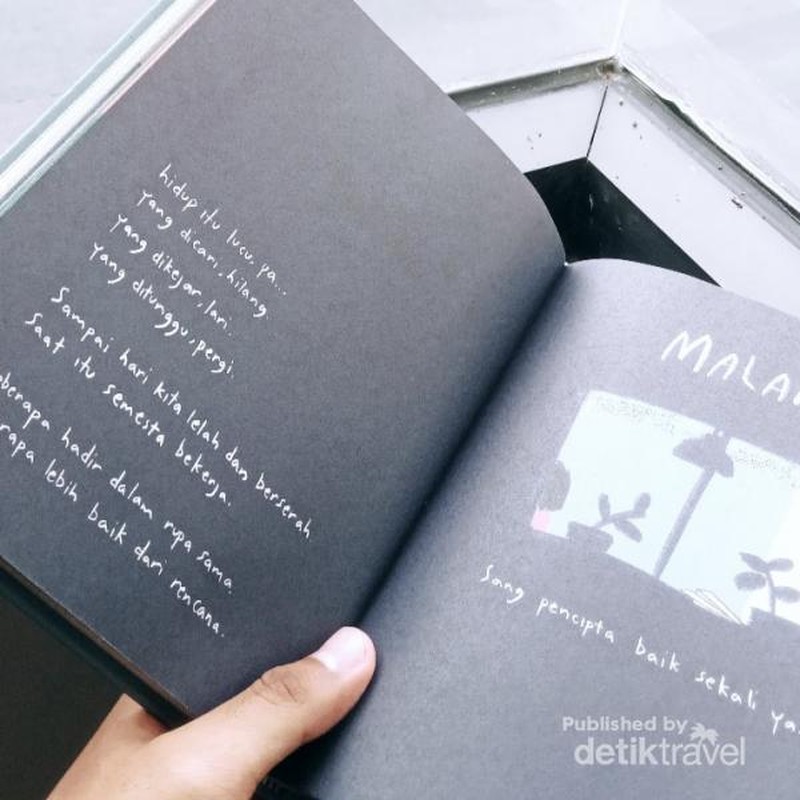 hidup itu lucu, ya...
Yang dicari, hilang
Yang dikejar, lari.
Yang ditunggu, pergi.
Sampai hari kita lelah dan berserah
Saat itu semesta bekerja.
hadir dalam rupa sama.
lebih baik dari rencana.
Sang pencipta baik sekali
Published by
detiktravel